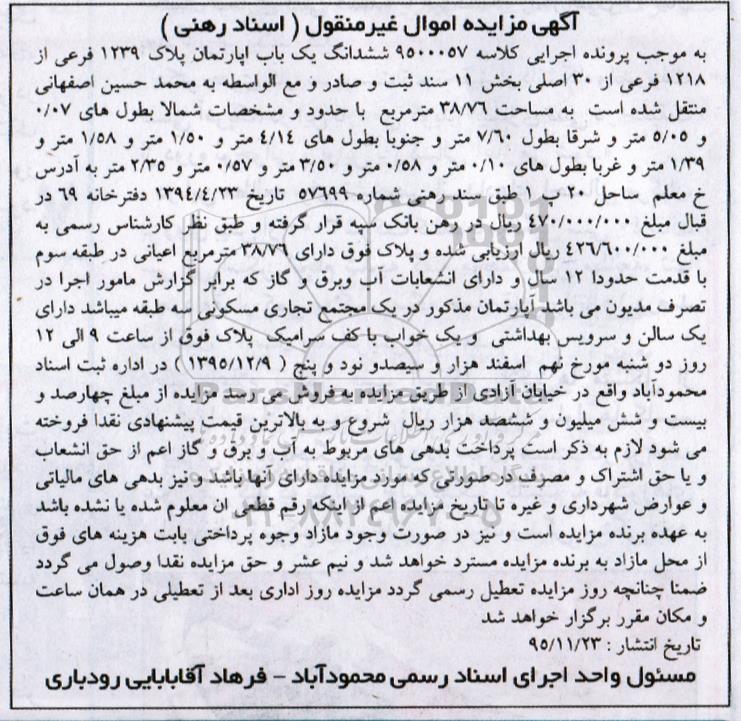 آگهی مزایده اموال غیرمنقول ( اسناد رهنی )
به موجب پرونده اجرایی کلاسه ۹۵۰۰۰۵۷ ششدانگ یک باب اپارتمان پلاک ۱۲۳۹ فرعی از
۱۲۱۸ فرعی از ۳۰ اصلی بخش ۱۱ سند ثبت و صادر و مع الواسطه به محمد حسین اصفهانی
منتقل شده است به مساحت ۳۸/۷۶ مترمربع با حدود و مشخصات شمالا بطول های ۰/۰۷
و ۵/۰۵ متر و شرقا بطول ۷/۶۰ متر و جنوبا بطول های ۴/۱۴ متر و ۱/۵۰ متر و ۱/۵۸ متر و
۱/۳۹ متر و غربا بطول های ۰/۱۰ متر و ۰/۵۸ متر و ۳/۵۰ متر و ۰/۵۷ متر و ۲/۳۵ متر به آدرس
خ معلم ساحل ۲۰ پ ۱ طبق سند رهنی شماره ۵۷۶۹۹ تاریخ ۱۳۹۴/۴/۲۳ دفترخانه ۶۹ در
قبال مبلغ ۴۷۰/۰۰۰/۰۰۰ ریال در رهن بانک سپه قرار گرفته و طبق نظر کارشناس رسمی به
مبلغ ۴۲۶/۶۰۰/۰۰۰ ریال ارزیابی شده و پلاک فوق دارای ۳۸/۷۶ مترمربع اعیانی در طبقه سوم
با قدمت حدودا ۱۲ سال و دارای انشعابات آب وبرق و گاز که برابر گزارش مامور اجرا در
تصرف مدیون می باشد آپارتمان مذکور در یک مجتمع تجاری مسکونی سه طبقه میباشد دارای
یک سالن و سرویس بهداشتی و یک خواب با کف سرامیک پلاک فوق از ساعت ۹ الی ۱۲
روز دو شنبه مورخ نهم اسفند هزار و سیصدو نود و پنج ( ۱۳۹۵/۱۲/۹ ) در اداره ثبت اسناد
محمودآباد واقع در خیابان آزادی از طریق مزایده به فروش می رسد مزایده از مبلغ چهارصد و
بیست و شش میلیون و ششصد هزار ریال شروع و به بالاترین قیمت پیشنهادی نقدا فروخته
می شود لازم به ذکر است پرداخت بدهی های مربوط به آب و برق و گاز اعم از حق انشعاب
و یا حق اشتراک و مصرف در صورتی که مورد مزایده دارای آنها باشد و نیز بدهی های مالیاتی
و عوارض شهرداری و غیره تا تاریخ مزایده اعم از اینکه رقم قطعی ان معلوم شده یا نشده باشد
به عهده برنده مزایده است و نیز در صورت وجود مازاد وجوه پرداختی بابت هزینه های فوق
از محل مازاد به برنده مزایده مسترد خواهد شد و نیم عشر و حق مزایده نقدا وصول می گردد
ضمنا چنانچه روز مزایده تعطیل رسمی گردد مزایده روز اداری بعد از تعطیلی در همان ساعت
و مکان مقرر برگزار خواهد شد
تاریخ انتشار : ۹۵/۱۱/۲۳
مسئول واحد اجرای اسناد رسمی محمودآباد - فرهاد آقابابایی رودباری